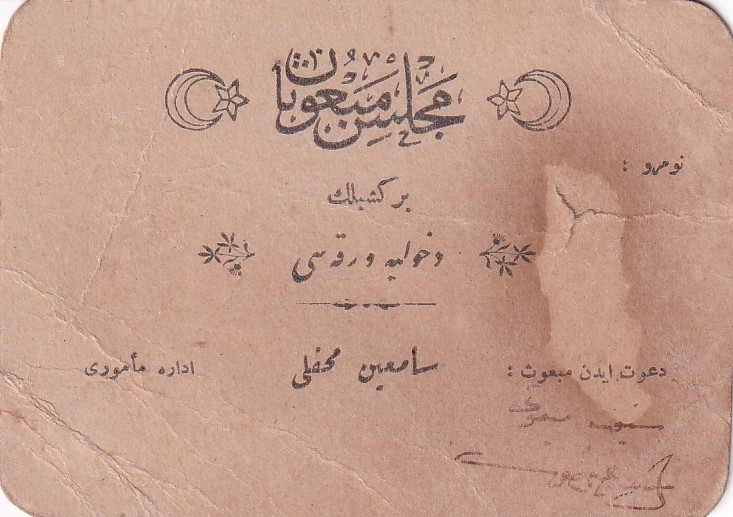 مجلس مبعوثان
نومرو :
بر كشیلك
دخولیه ورقه سی
سامعین محفلی
دعوت ایدن مبعوث :
اداره مأموری